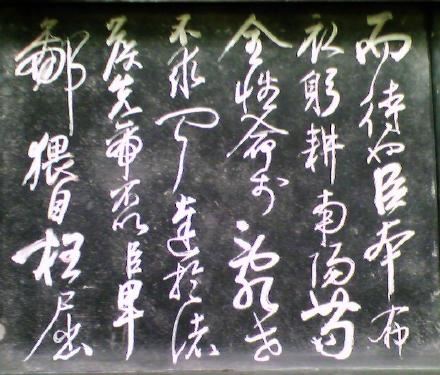 而待也臣本布
衣躬耕南陽苟
全性命於亂世
不求聞達於諸
侯先帝不以臣卑
鄙猥自枉屈